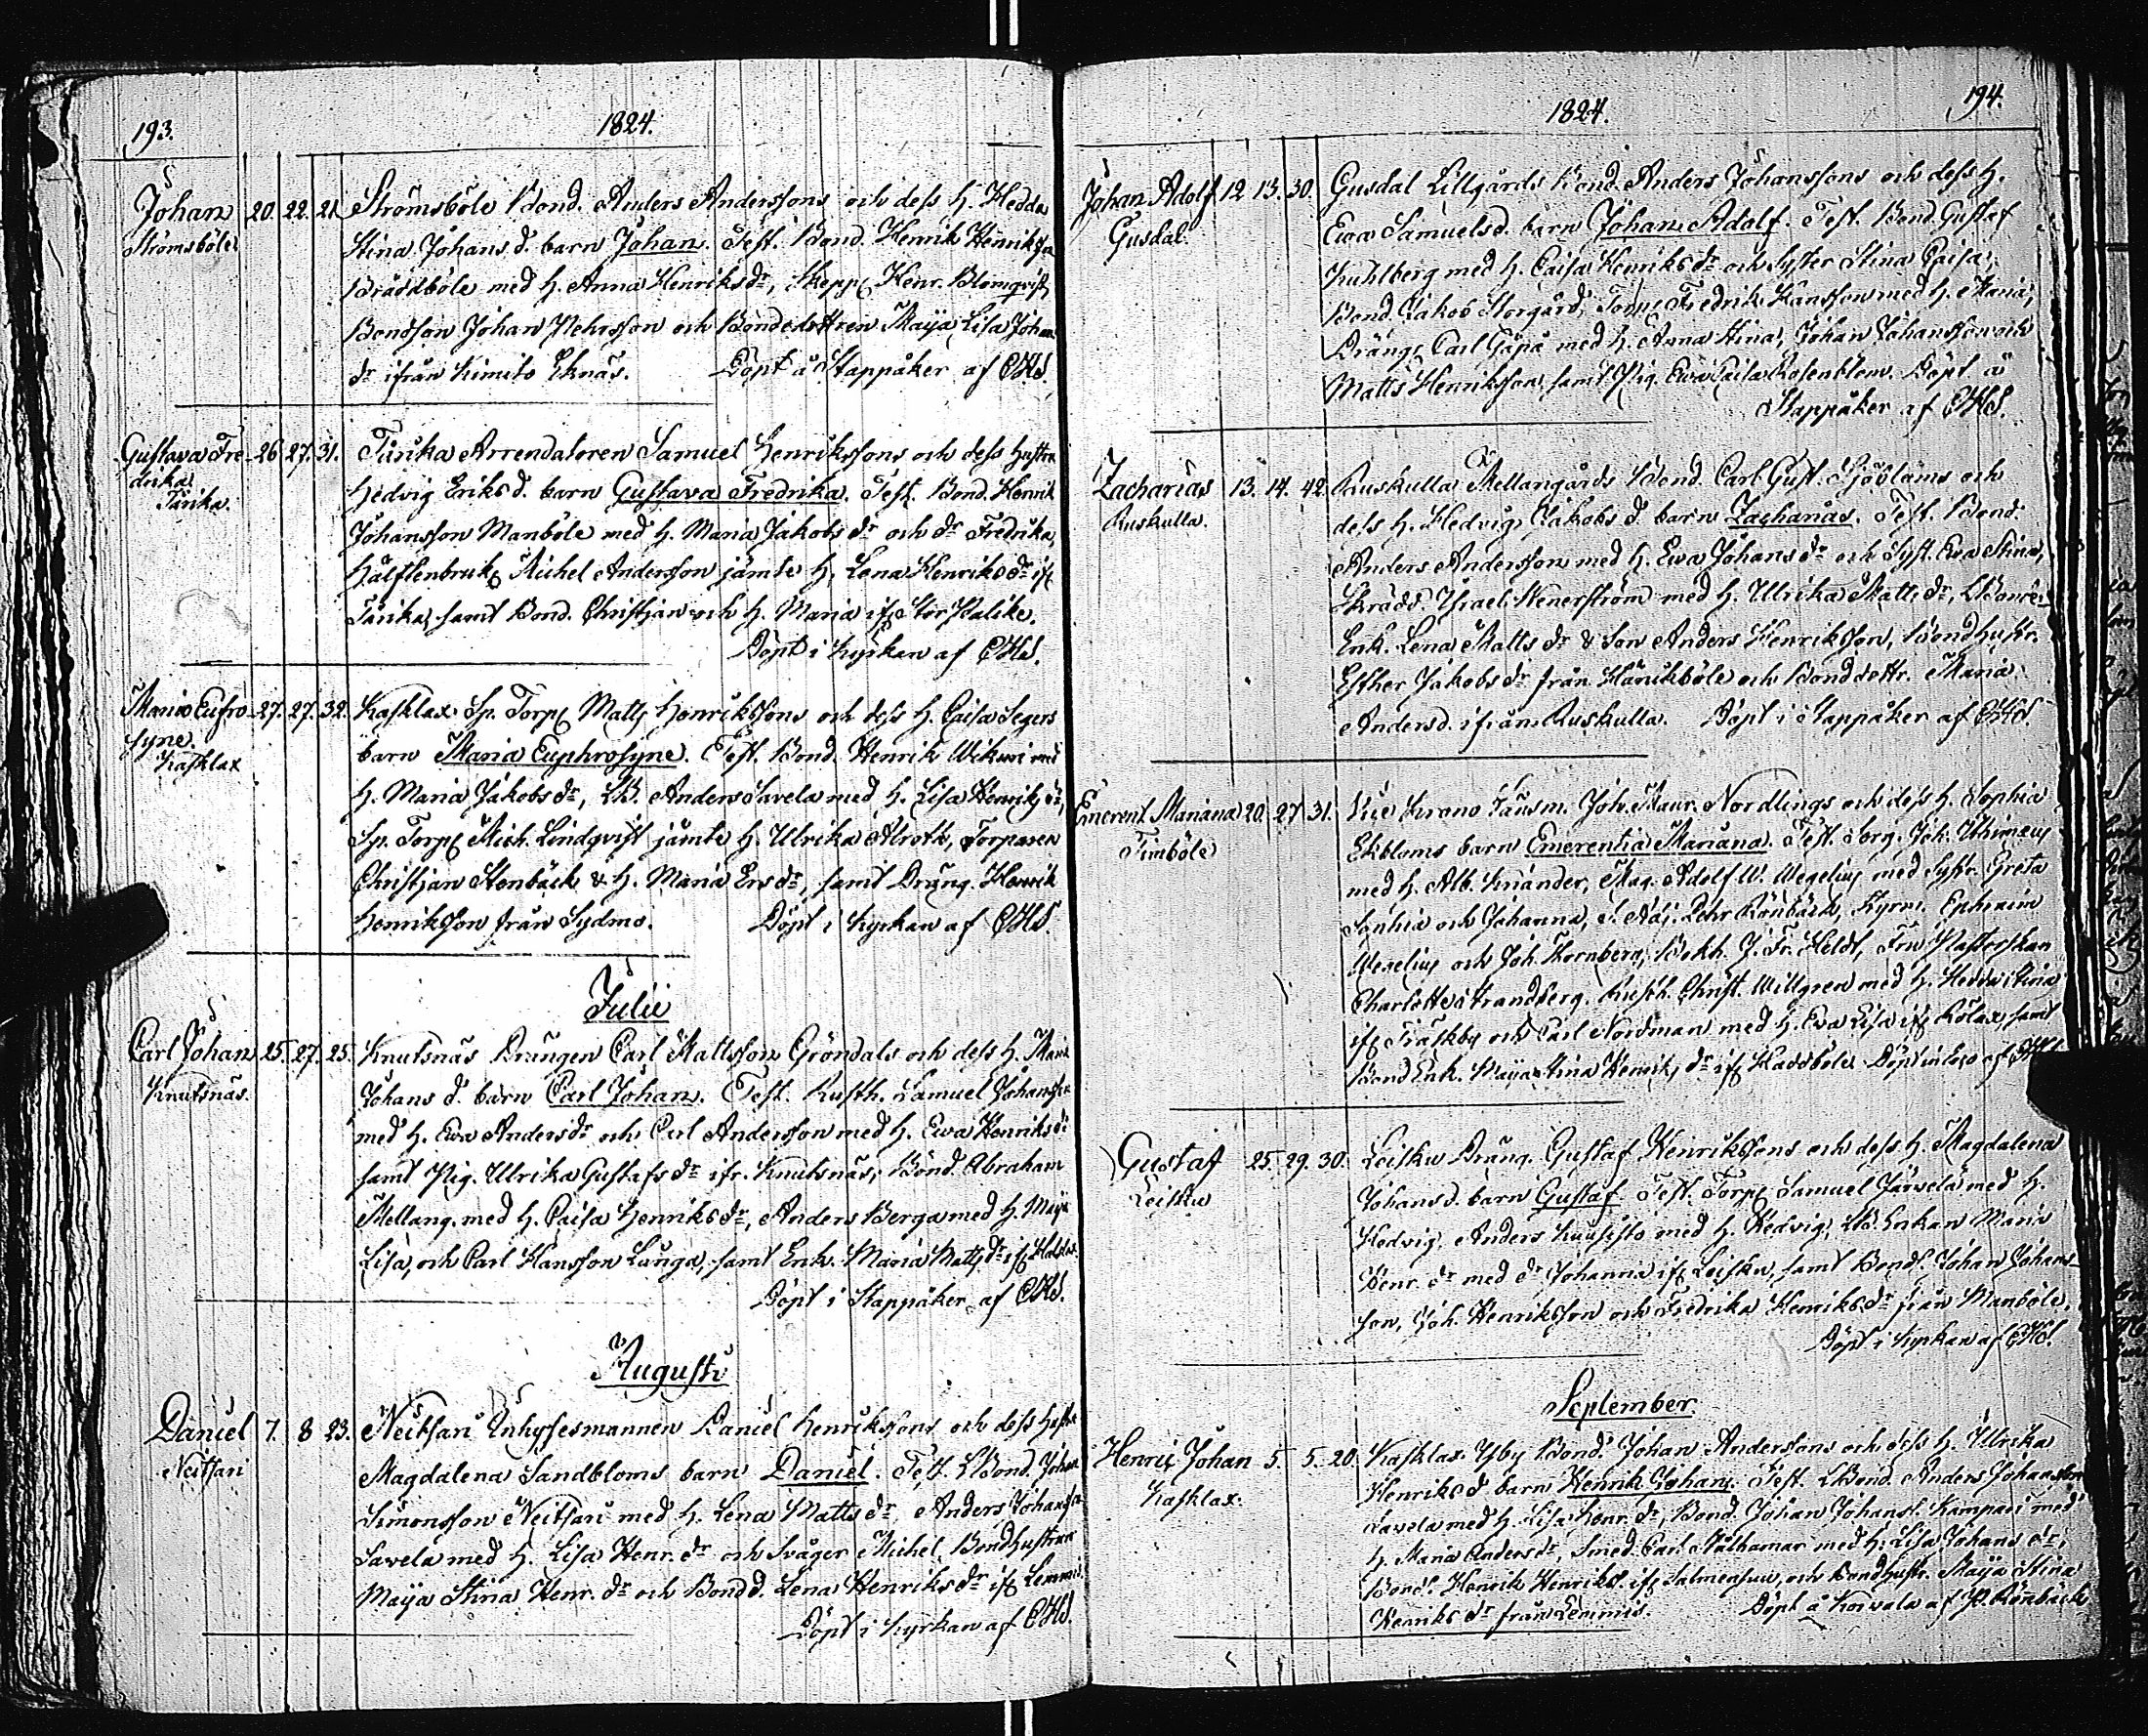 193.
1824.
Johan 20. 22. 21. Strömsböle Bond. Anders Anderssons och dess H. Hedda
Strömsböle Stina Johans d. barn Johan. Test. Bond. Henrik Henriksson
Bräddböle med H. Anna Henriks dr, Skepp Henr. Blomqvist,
Bondson Johan Pehrsson och Bondedottren Maija Lisa Johans
dr ifrån Kimito Eknäs. Döpt å Stappåker af CHS.
Gustava Fre- 26. 27. 31. Tärika Arrendatoren Samuel Henrikssons och dess hustru
drika Hedvig Eriks d. barn Gustava Fredrika. Test. Bond. Henrik
Tärika. Johansson Manböle med H. Maria Jakobs dr och dr Fredrika,
Hälftenbruk Michel Andersson jämte H. Lena Henriks dr if
Tärika, samt Bond. Christjan och H. Maria if Stor
Döpt i Kyrkan af CHS.
Maria Eufro- 27. 27. 32. Kasklax Sp. Torp Matts Henrikssons och dess H. Caisa Segers
syne. barn Maria Euphrosyne. Test. Bond. Henrik med
Kasklax H. Maria Jakobs dr, LB. Anders Savela med H. Lisa Henriks dr,
Sp. Torp Mich. Lindqvist jämte H. Ulrika Alroth, Torparen
Christjan Stenbäck & H. Maria Ers dr, samt Dräng. Henrik
Henriksson från Sydmo. Döpt i Kyrkan af CHS.
Julii
Carl Johan 25. 27. 25. Knutsnäs Drängen Carl Mattsson Gröndals och dess H. Maria
Knutsnäs. Johans d. barn Carl Johan. Test. Rusth. Samuel Johansson
med H. Eva Anders dr och Carl Andersson med H. Ewa Henriks dr
samt Pig. Ulrika Gustafs dr ifr. Knutsnäs, Bond. Abraham
Mellang. med H. Caisa Henriks dr, Anders Berga med H. Maija
Lisa, och Carl Hansson Långa, samt Enk. Maria Matts dr if
Döpt i Stappåker af CHS.
Augusti
Daniel 7. 8 23. Neitsari Inhysesmannen Daniel Henrikssons och dess hustru
Neitsari Magdalena Sandbloms barn Daniel. Test. LBond. Johan
Simonsson Neitsari med H. Lena Matts dr, Anders Johansson
Savela med H. Lisa Henr. dr och Svåger Michel, Bondhustrun
Maija Stina Henr. dr och Bond d. Lena Henriks dr if Lemmis.
Döpt i Kyrkan af CHS.
1824. 194.
Johan Adolf 12 13. 30. Gusdal Lillgårds Bond. Anders Johanssons och dess H.
Gusdal. Ewa Samuels d. barn Johan Adolf. Test. Bond. Gustaf
Kuhlberg med H. Caisa Henriks dr och Syster Stina Caisa,
Bond. Jakob Storgård, Torp Fredrik Hansson med H. Maria,
Dräng Carl med H. Anna Stina, Johan Johansson och
Matts Henriksson samt Pig. Ewa Caisa Rosenblom. Döpt å
Stappåker af CHS.
Zacharias 13. 14. 42. Ruskulla Mellangårds Bond. Carl Gust. Sjöbloms och
Ruskulla. dess H. Hedvig Jakobs d. barn Zacharias. Test. Bond.
Anders Andersson med H. Ewa Johans dr och Syst. Ewa Stina,
Skrädd. Israel Wenerström med H. Ulrika Matts dr, LBond-
Enk. Lena Matts dr & Son Anders Henriksson, Bondhustr.
Esther Jakobs dr från Hänikböle och Bonddottr. Maria
Anders d. ifrån Ruskulla. Döpt i Stappåker af CHS.
Emerent. Mariana 20. 27 31. Vice Krono Länsm. Joh. Maur. Nordlings och dess H. Sophia
Timböle Ekbloms barn Emerentia Mariana. Test. Serg. Joh.
med H. Alb. Kriander, Mag. Adolf W. Wegelius med Systr. Greta
Sophia och Johanna, S. Adj. Pehr Rönbäck, Ephraim
Wegelius och Joh. Thornberg, Bokh. J. Fr. Heldt, Fru Pastorskan
Charlotte Strandberg. Rusth. Christ. Willgren med H. Hedda Stina
if Träskby och Carl Nordman med H. Eva Lisa if Rölax, samt
Bond Enk. Maija Stina Henriks dr if Döpt in loco af CHS
Gustaf 25. 29. 30. Leisku Dräng. Gustaf Henrikssons och dess H. Magdalena
Leisku Johans d. barn Gustaf. Test. Torp Samuel Järvelä med H.
Hedvig, Anders Kuusisto med H. Hedvig, LB. Enkan Maria
Henr. dr med dr Johanna if Leisku, samt Bonds. Johan Johans-
son, Joh. Henriksson och Fredrika Henriks dr från Manböle.
Döpt i Kyrkan af CHS.
September
Henric Johan 5. 5. 20. Kasklax Yby Bond. Johan Anderssons och dess H. Ulrika
Kasklax. Henriks d barn Henrik Johan. Test. LBond. Anders Johansson
Savela med H. Lisa Henr. dr, Bond. Johan Johanss. Kampari med
H. Maria Anders dr, Smed. Carl Stålhamar med H. Lisa Johans dr,
Bonds. Henrik Henrikss. if Salmensuu, och Bondhustr. Maija Stina
Henriks dr från Lemmis. Döpt å Koivula af P. Rönbäck